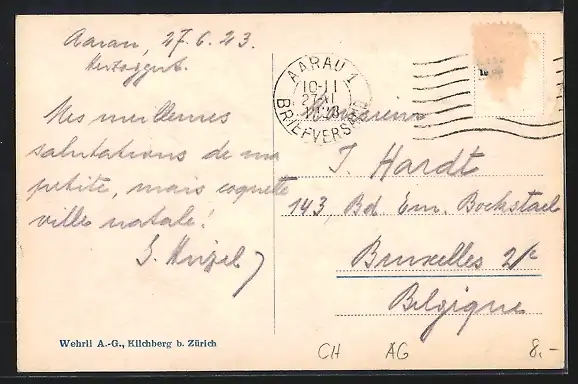 Aarau, 27.6.23.
Herzoggut.
Mes meilleures
salutations de ma
petite, mais coquette
ville natale!
AARAU 1
10-11
27.VI
BRIEFVERSAND
Monsieur
J. Hardt
143, Bd. Em. Bockstael
Bruxelles 2/e
Belgique
Wehrli A.-G., Kilchberg b. Zürich
CH AG 8.-